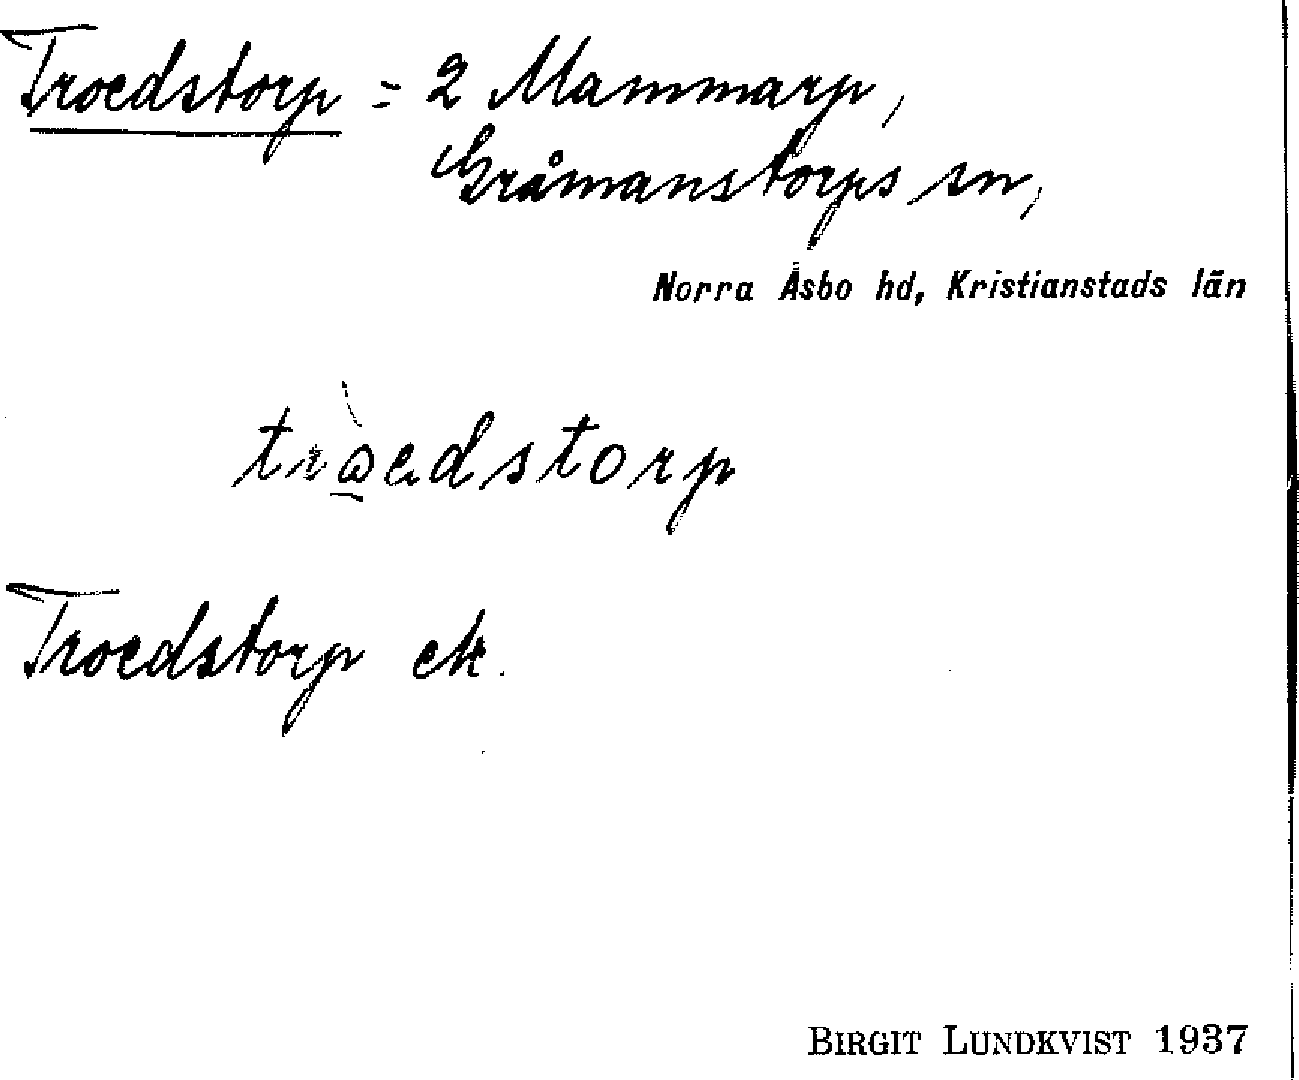 Troedstorp = 2 Mammarp,
Gråmanstorps sn,
Norra Åsbo hd, Kristianstads län
Troedstorp ek.
BIRGIT LUNDKVIST 1937